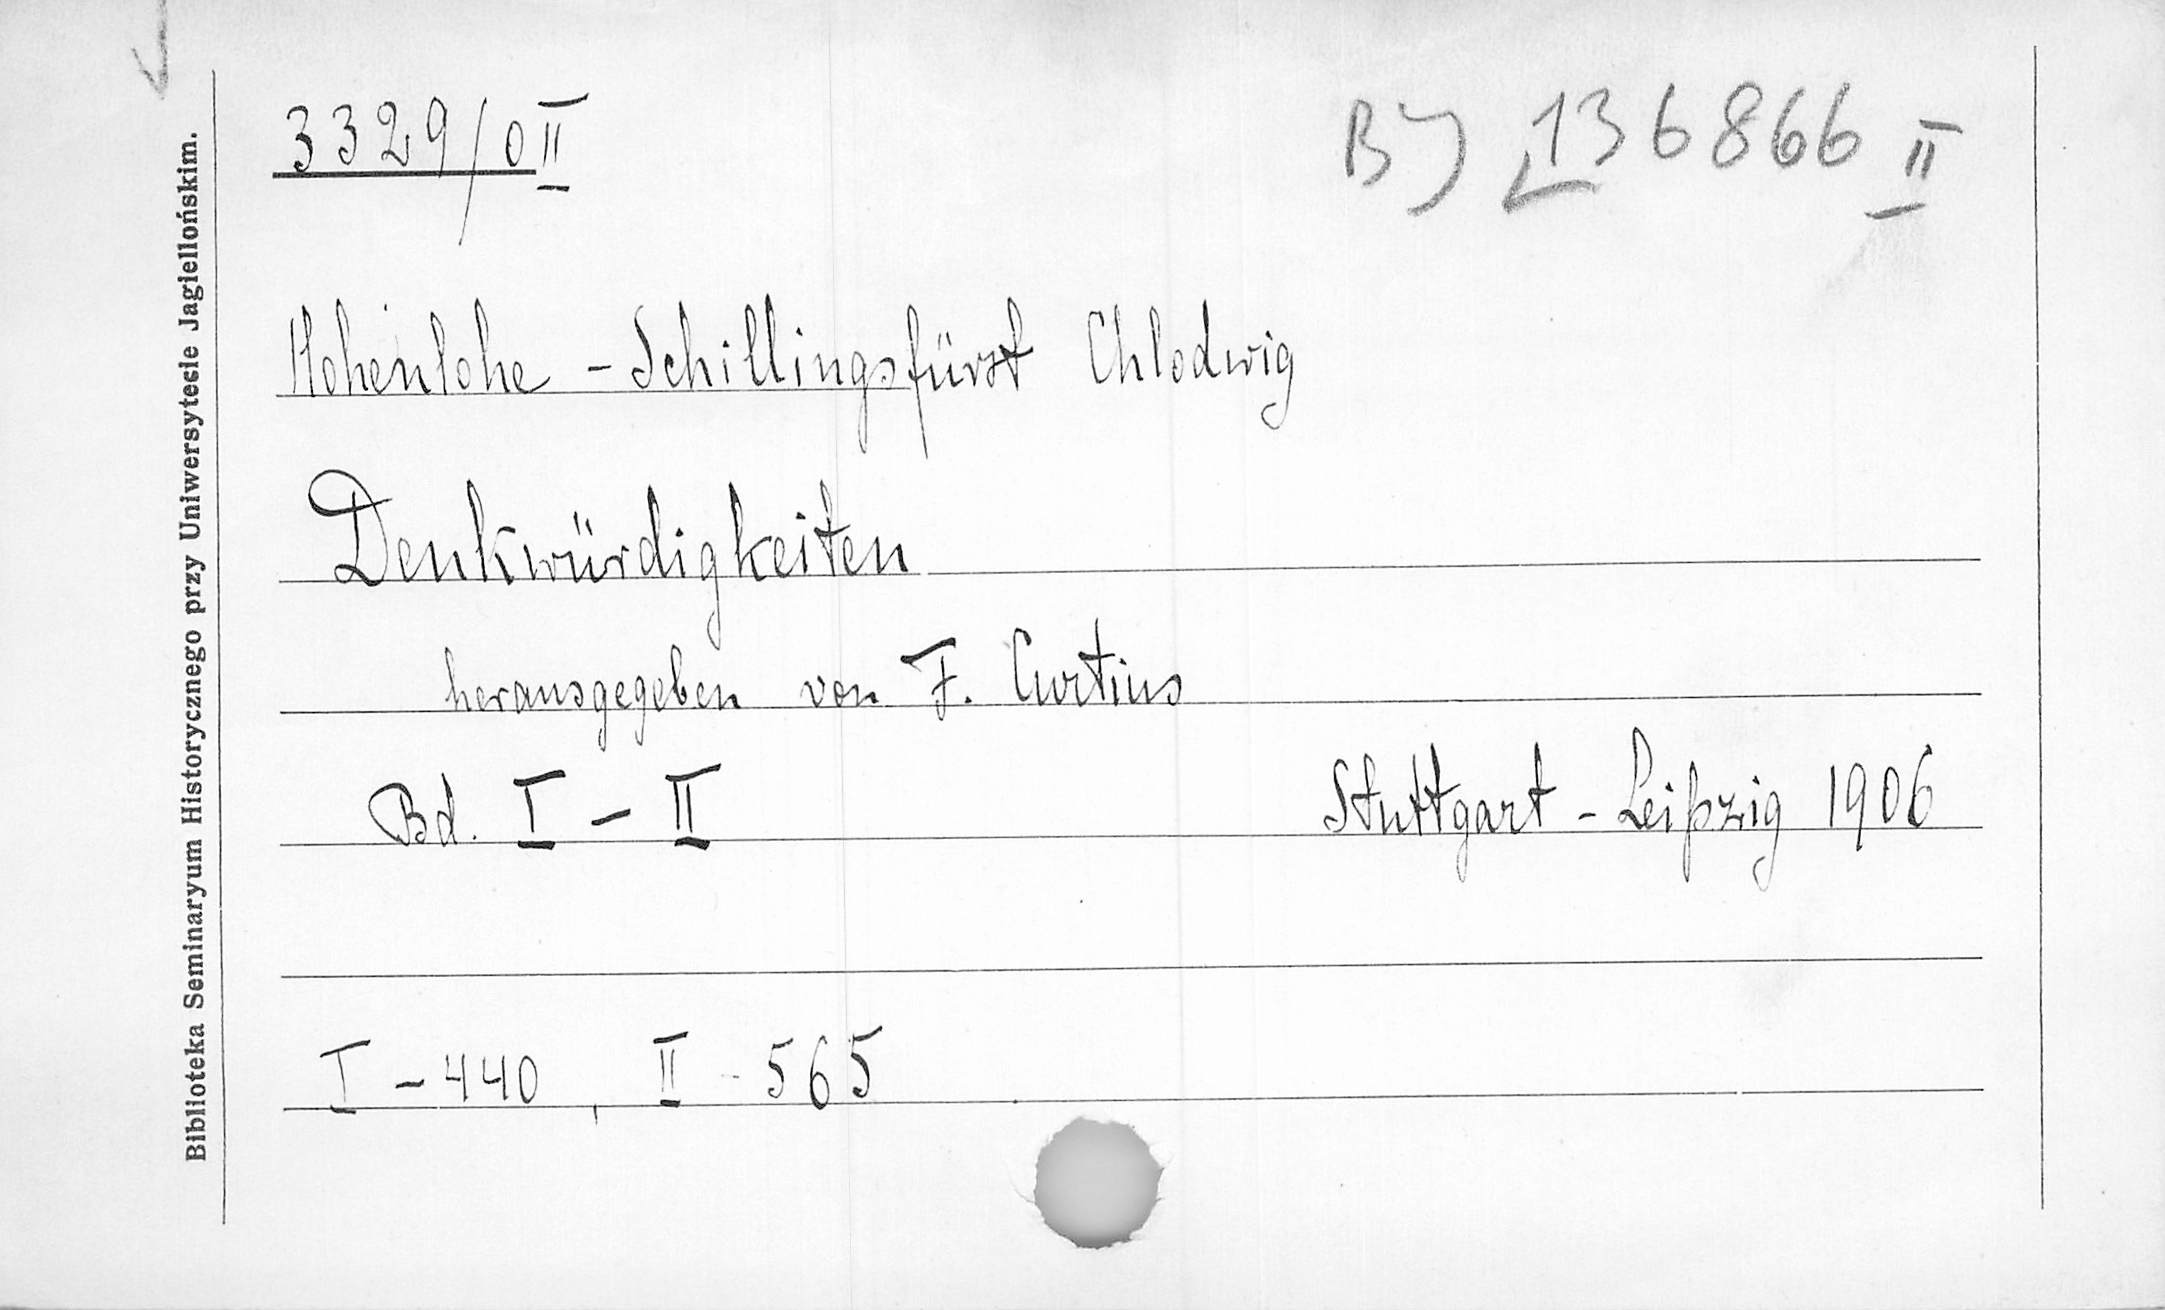 3329/0 II
BJ 136866 II
Hohenlohe - Schillingsfürst Chlodwig
Denkwürdigkeiten
herausgegeben von F. Curtius
Bd. I - II
Stuttgart - Leipzig 1906
I - 440, II - 565
Biblioteka Seminaryum Historycznego przy Uniwersytecie Jagiellońskim.